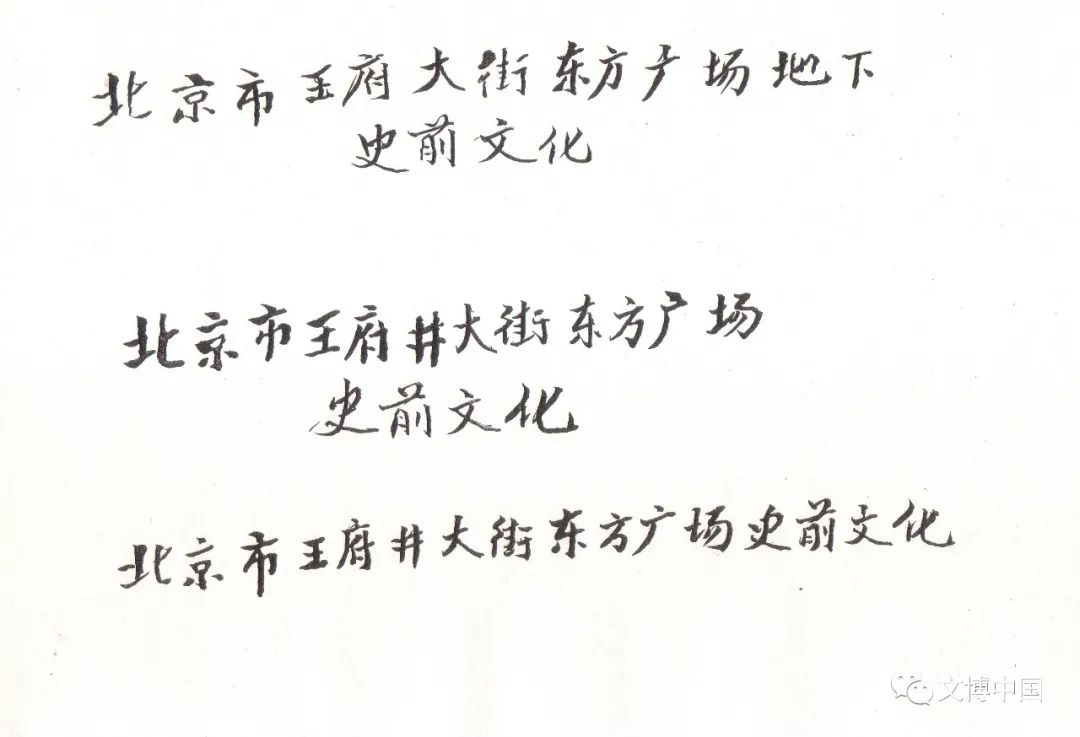 北京市王府大街东方广场地下
史前文化
北京市王府井大街东方广场
史前文化
北京市王府井大街东方广场史前文化
文博中国